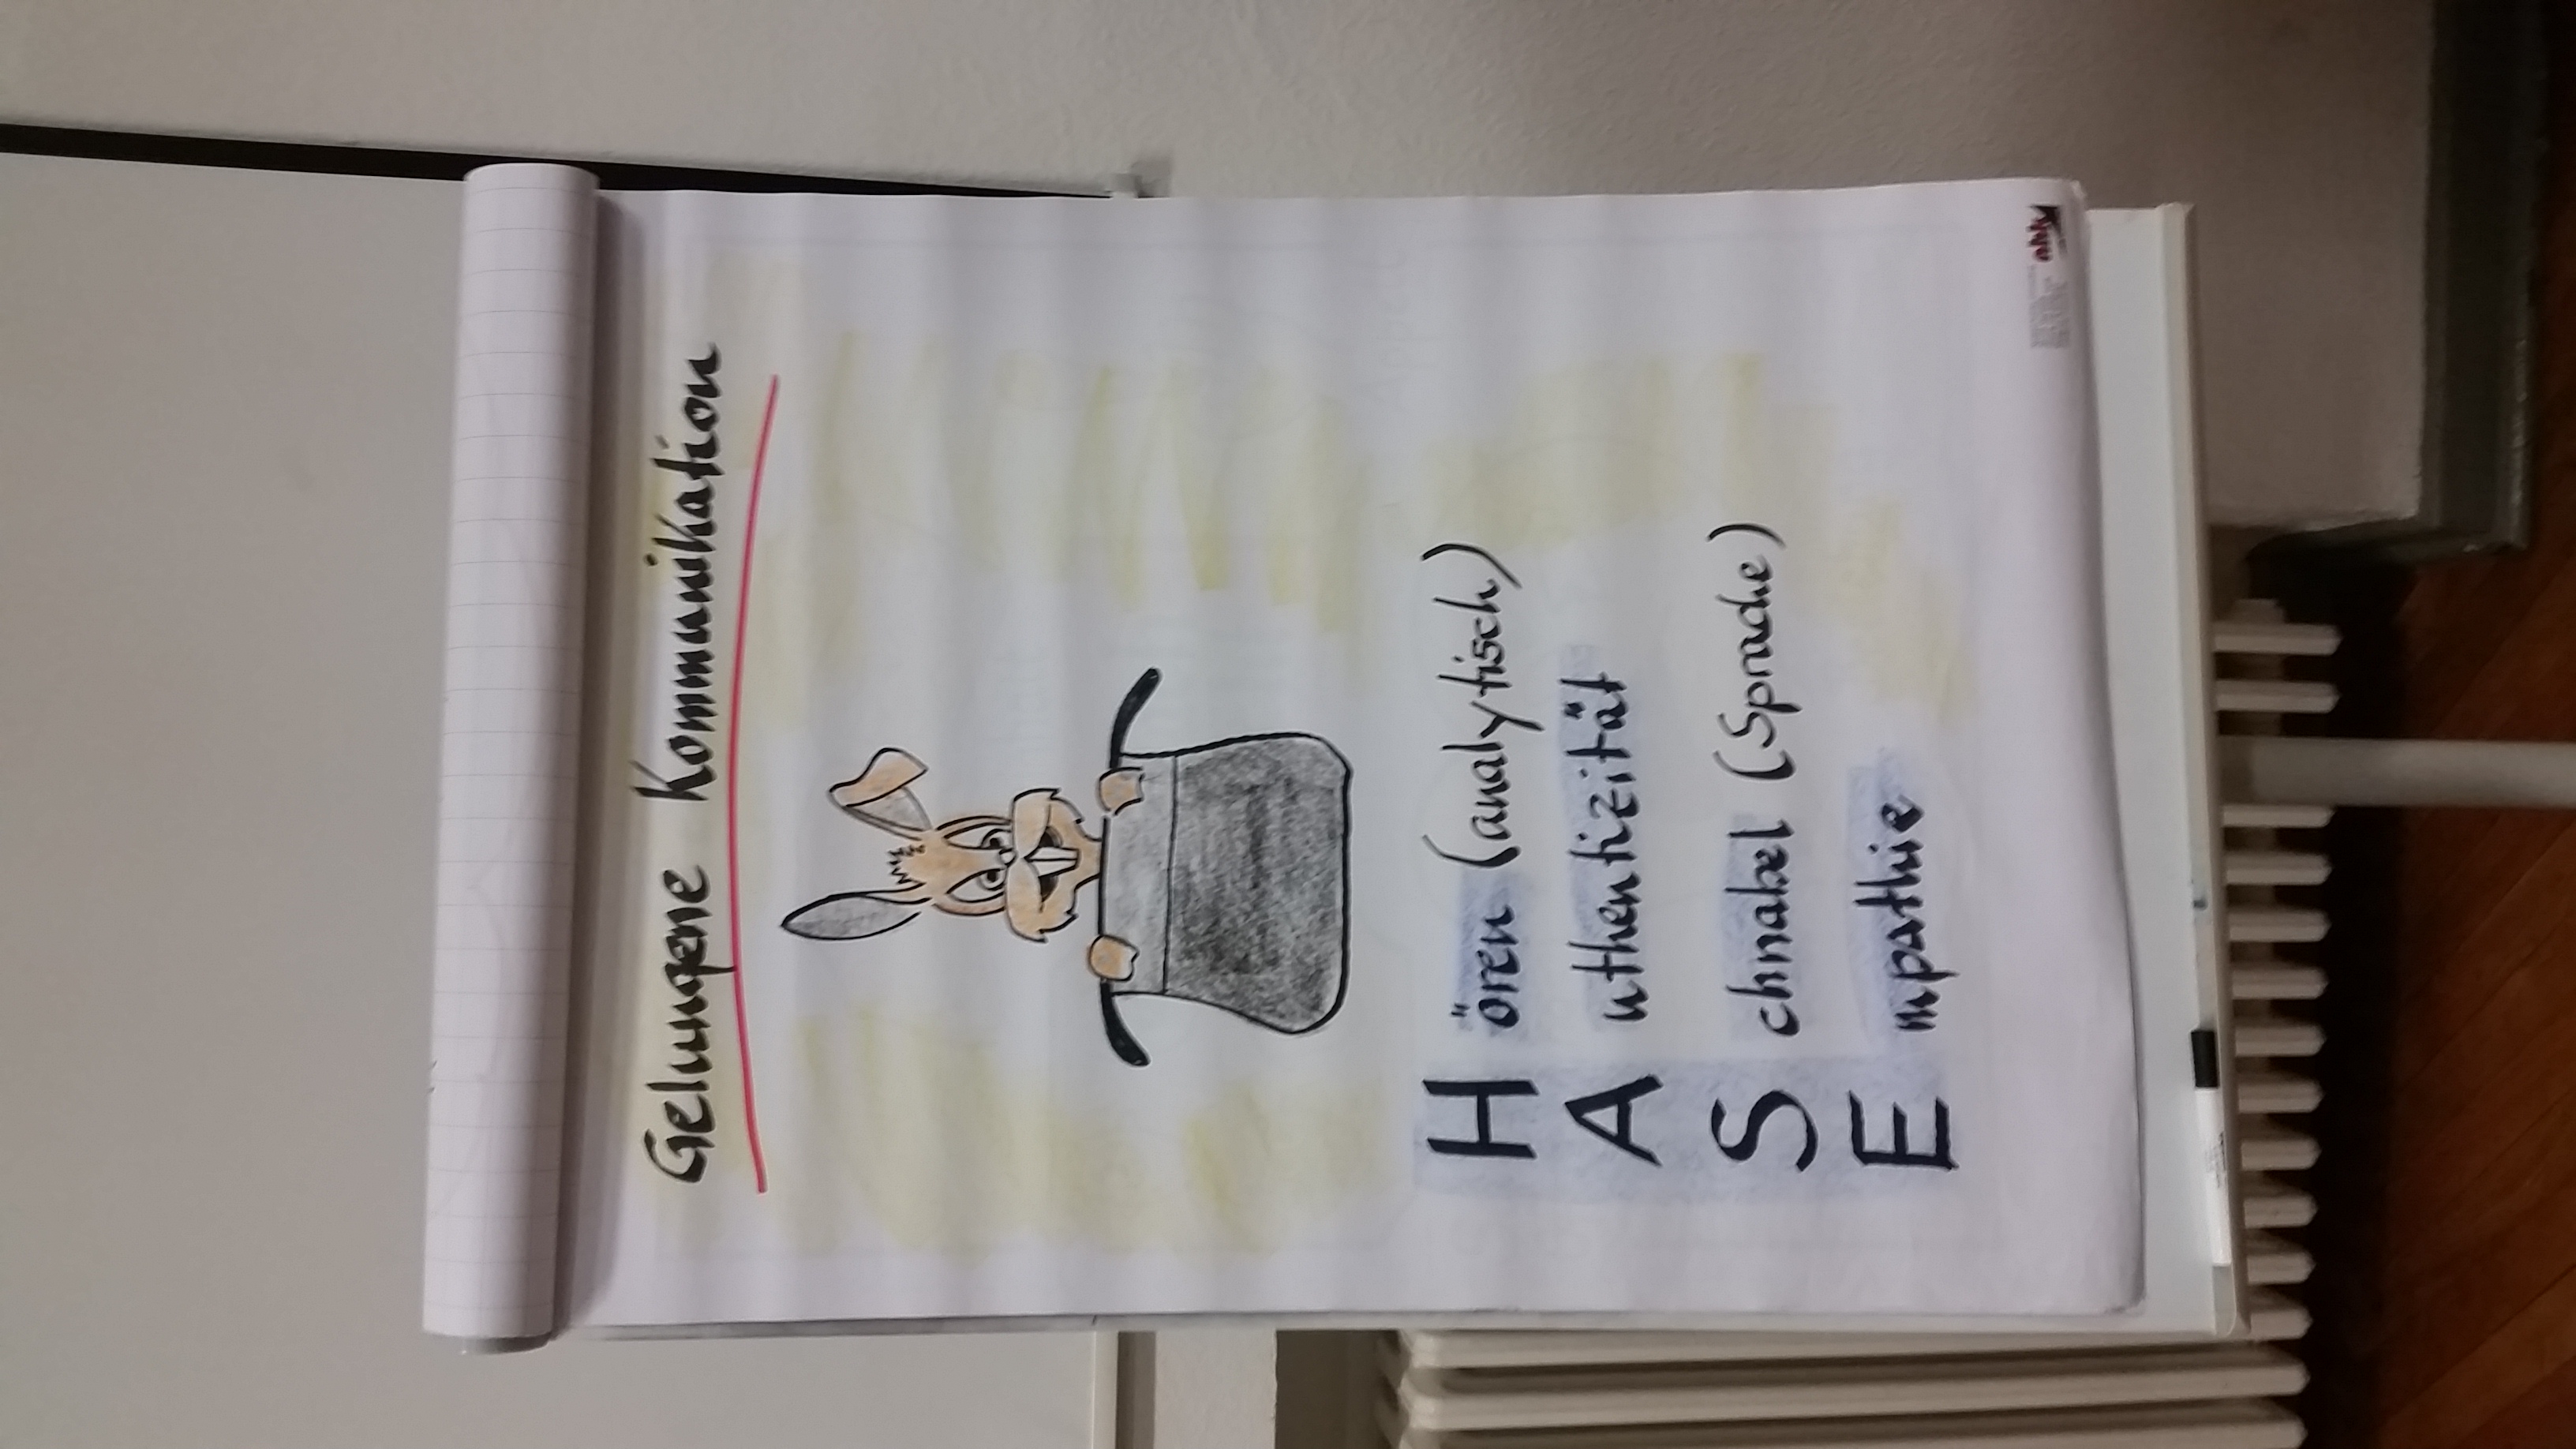 Gelungene Kommunikation
H ören (analytisch)
A uthentizität
S chnabel (Sprache)
E mpathie